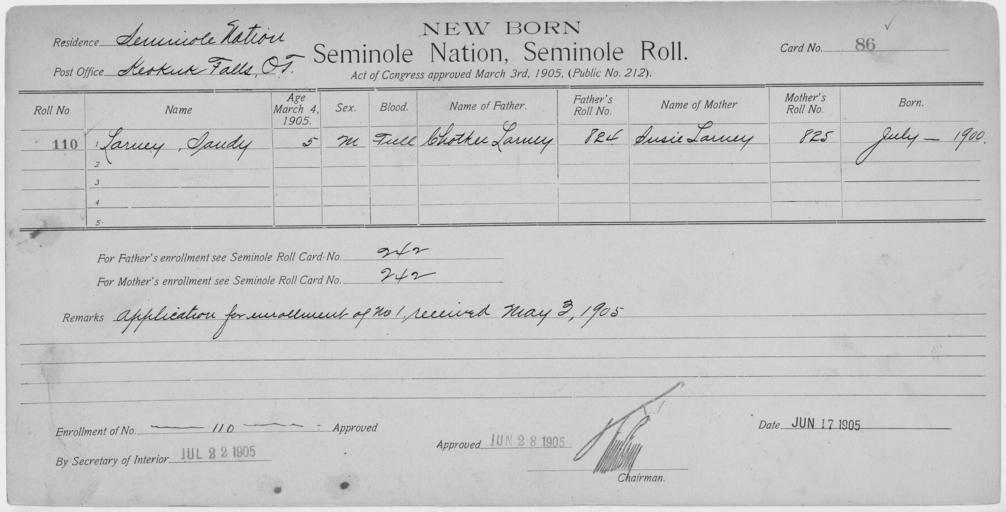 NEW BORN
Residence Seminole Nation
Seminole Nation, Seminole Roll.
Card No. 86
Post Office Keokuk Falls, O.T.
Act of Congress approved March 3rd, 1905, (Public No. 212).
Roll No Name Age March 4, 1905. Sex. Blood. Name of Father. Father's Roll No. Name of Mother Mother's Roll No. Born.
110 1 Larney, Sandy 5 M Full Chotkey Larney 824 Susie Larney 825 July — 1900.
2
3
4
5
For Father's enrollment see Seminole Roll Card No. 242
For Mother's enrollment see Seminole Roll Card No. 242
Remarks Application for enrollment of No 1, received May 3, 1905
Enrollment of No. 110 Approved
By Secretary of Interior JUL 22 1905
Approved JUN 28 1905
Chairman.
Date JUN 17 1905